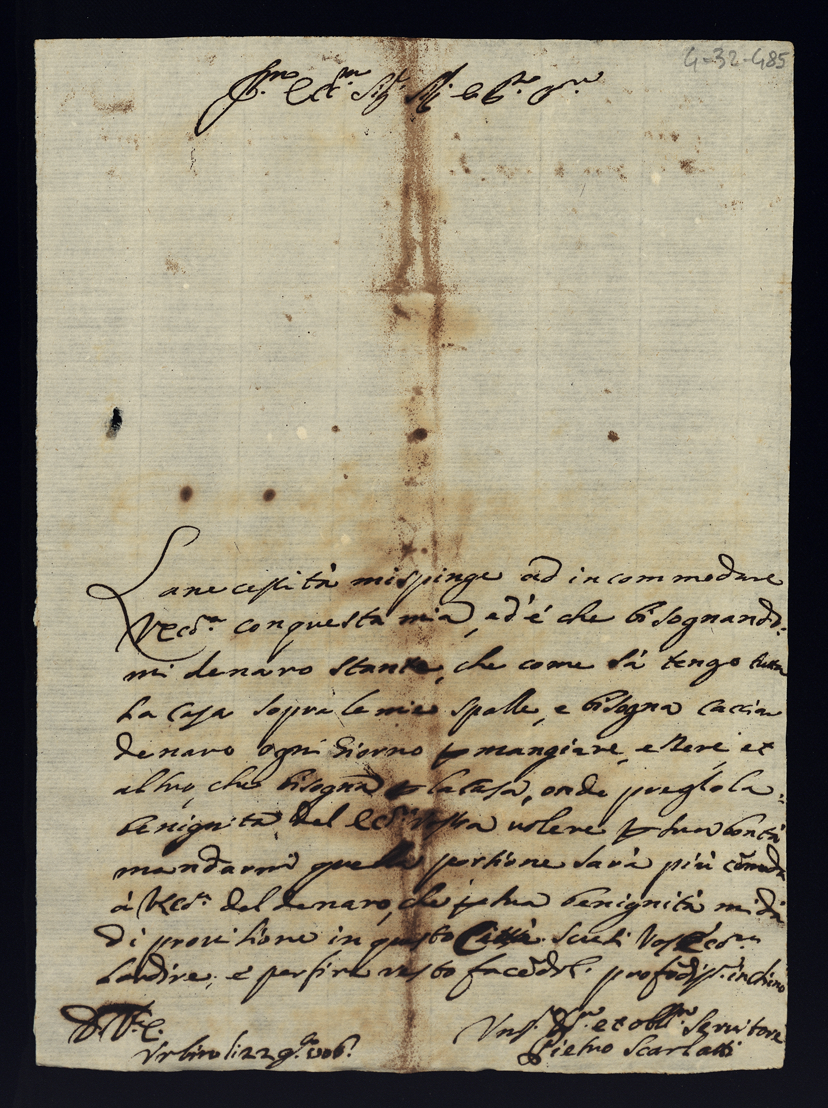 4-32-485
Ill.mo et Ecc.mo Sig.r Sig.r e P.ne Col.mo
La necessità mi spinge ad incommodare
V. Ecc.a con questa mia, ed' é che bisognando:
mi denaro stante, che come sà tengo tutta
La casa sopra le mie spalle, e bisogna cacciar
denaro ogni Giorno p mangiare, e bere, et
altro, che bisogna p la casa, onde prego la
benignità del Ecc.a Vostra volere p sua bontà
mandarmi quella portione sarà più comoda
à V. Ecc.a del denaro, che p sua benignità mi dà
di provisione in questa Città. Scusi Vos. Ecc.a
l'ardire, e per fine resto facedole profodiss.o inchino
D. V. E.
Urbino li 22 9.bre 1706.
Um.o D.mo et obl.mo Servitore
Pietro Scarlatti